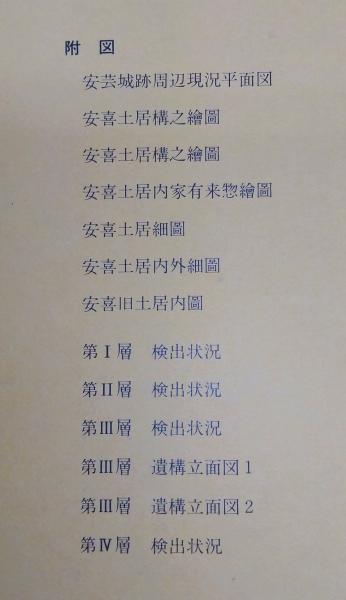 附　図
安芸城跡周辺現況平面図
安喜土居構之繪圖
安喜土居構之繪圖
安喜土居内家有来惣繪圖
安喜土居細圖
安喜土居内外細圖
安喜旧土居内圖
第Ⅰ層　検出状況
第Ⅱ層　検出状況
第Ⅲ層　検出状況
第Ⅲ層　遺構立面図1
第Ⅲ層　遺構立面図2
第Ⅳ層　検出状況